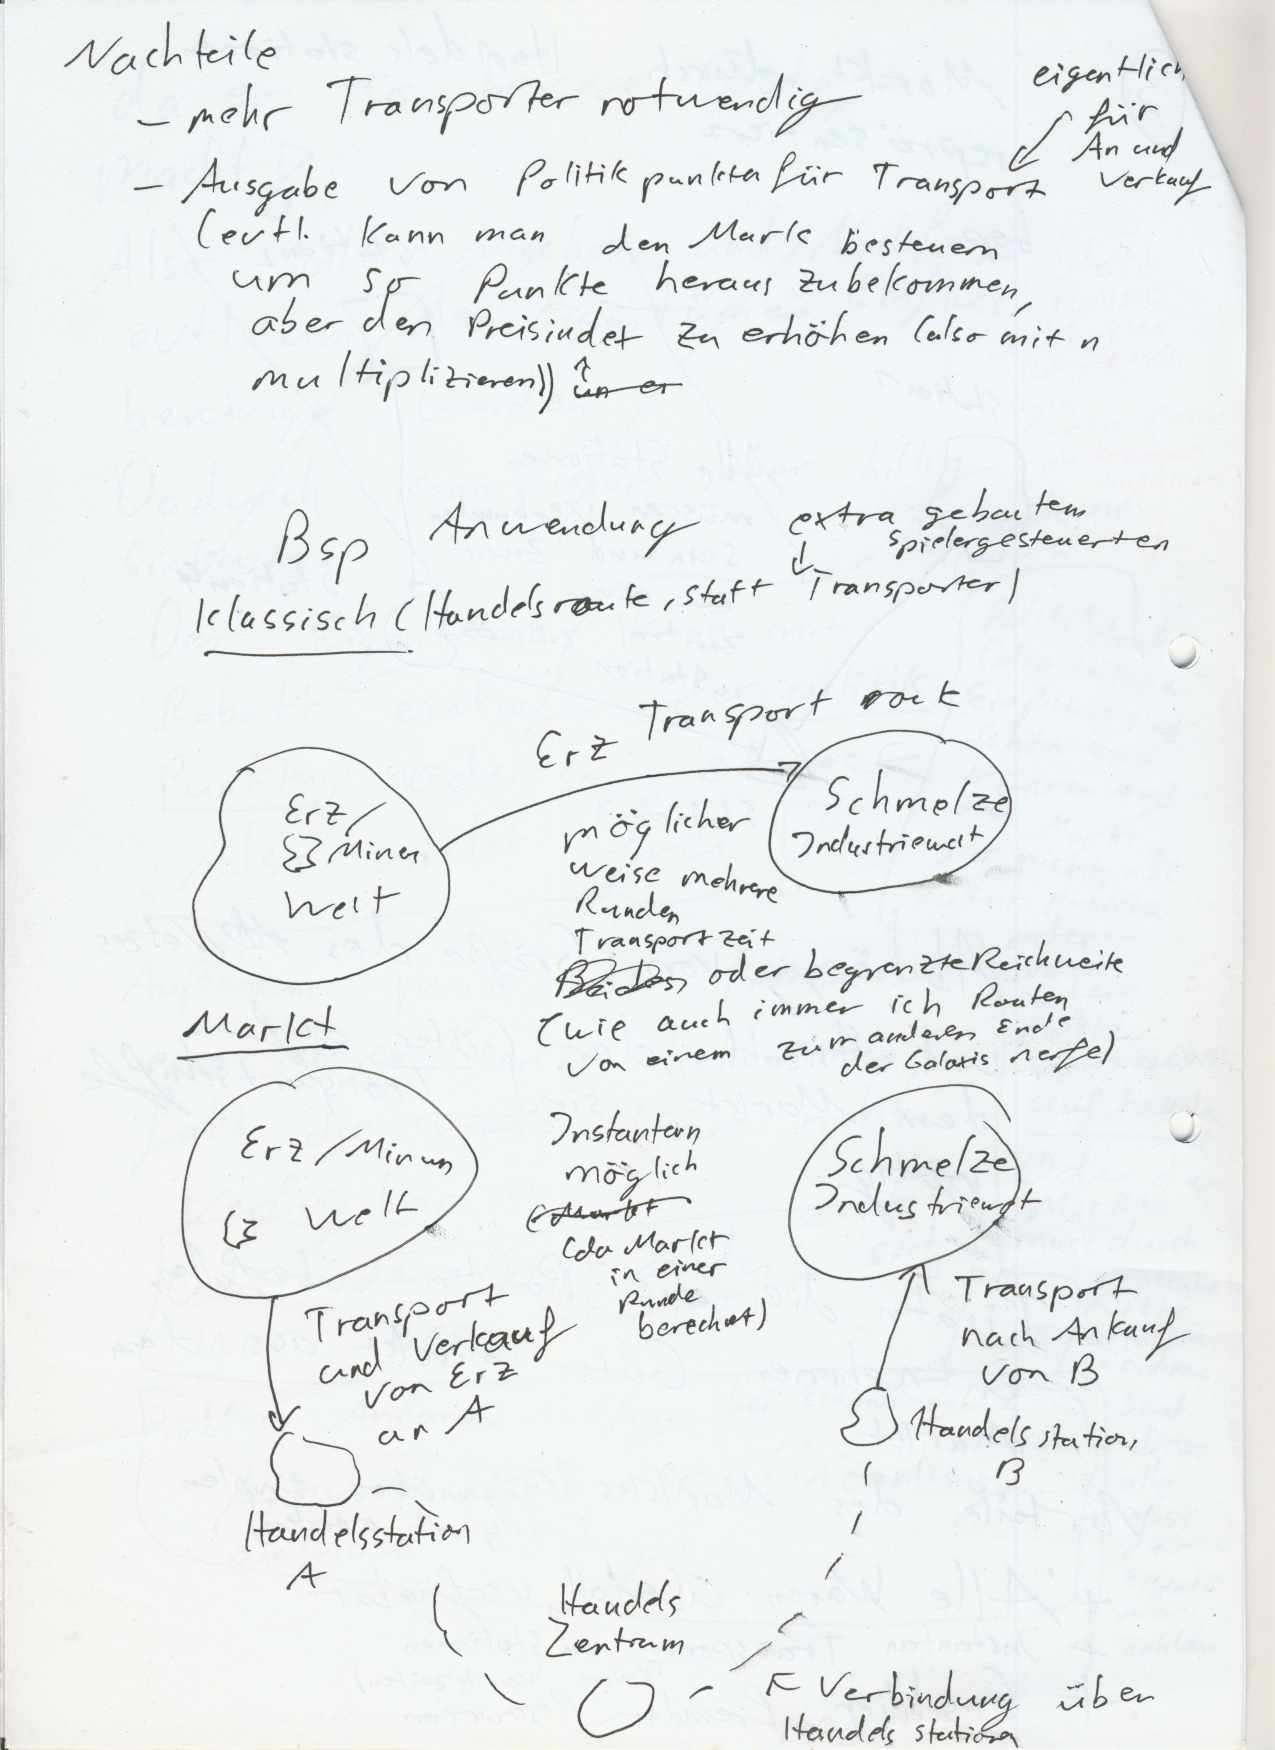 Nachteile
- mehr Transporter notwendig
eigentlich
für
An und
Verkauf
- Ausgabe von Politikpunkta für Transport
(evtl. kann man den Mark besteuern
um so Punkte heraus zubekommen,
aber den Preisindex zu erhöhen (also mit n
multiplizieren))
Bsp Anwendung
extra gebautem
spielergesteuerten
Klassisch (Handelsroute, statt Transporter)
Erz Transport
Erz/
Minen
Welt
Schmelze
Industriewelt
möglicher
weise mehrere
Runden
Transportzeit
oder begrenzte Reichweite
(wie auch immer ich Routen
von einem zum anderen Ende
der Galaxis nerfe)
Markt
Erz/Minen
Welt
Instantan
möglich
(Markt
(da Markt
in einer
Runde
berechnet)
Schmelze
Industriewelt
Transport
und Verkauf
von Erz
an A
Transport
nach Ankauf
von B
Handelsstation
A
Handelsstation
B
Handels
Zentrum
Verbindung über
Handelsstation